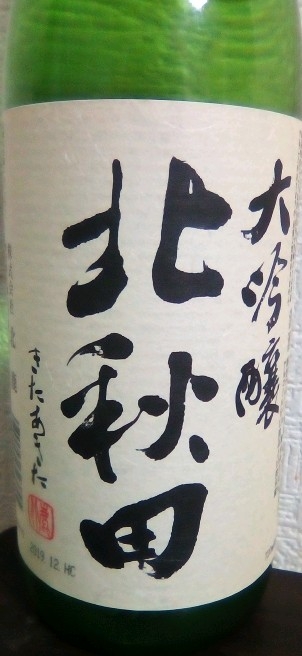 大吟醸
北秋田
きたあきた
2019.12.HC